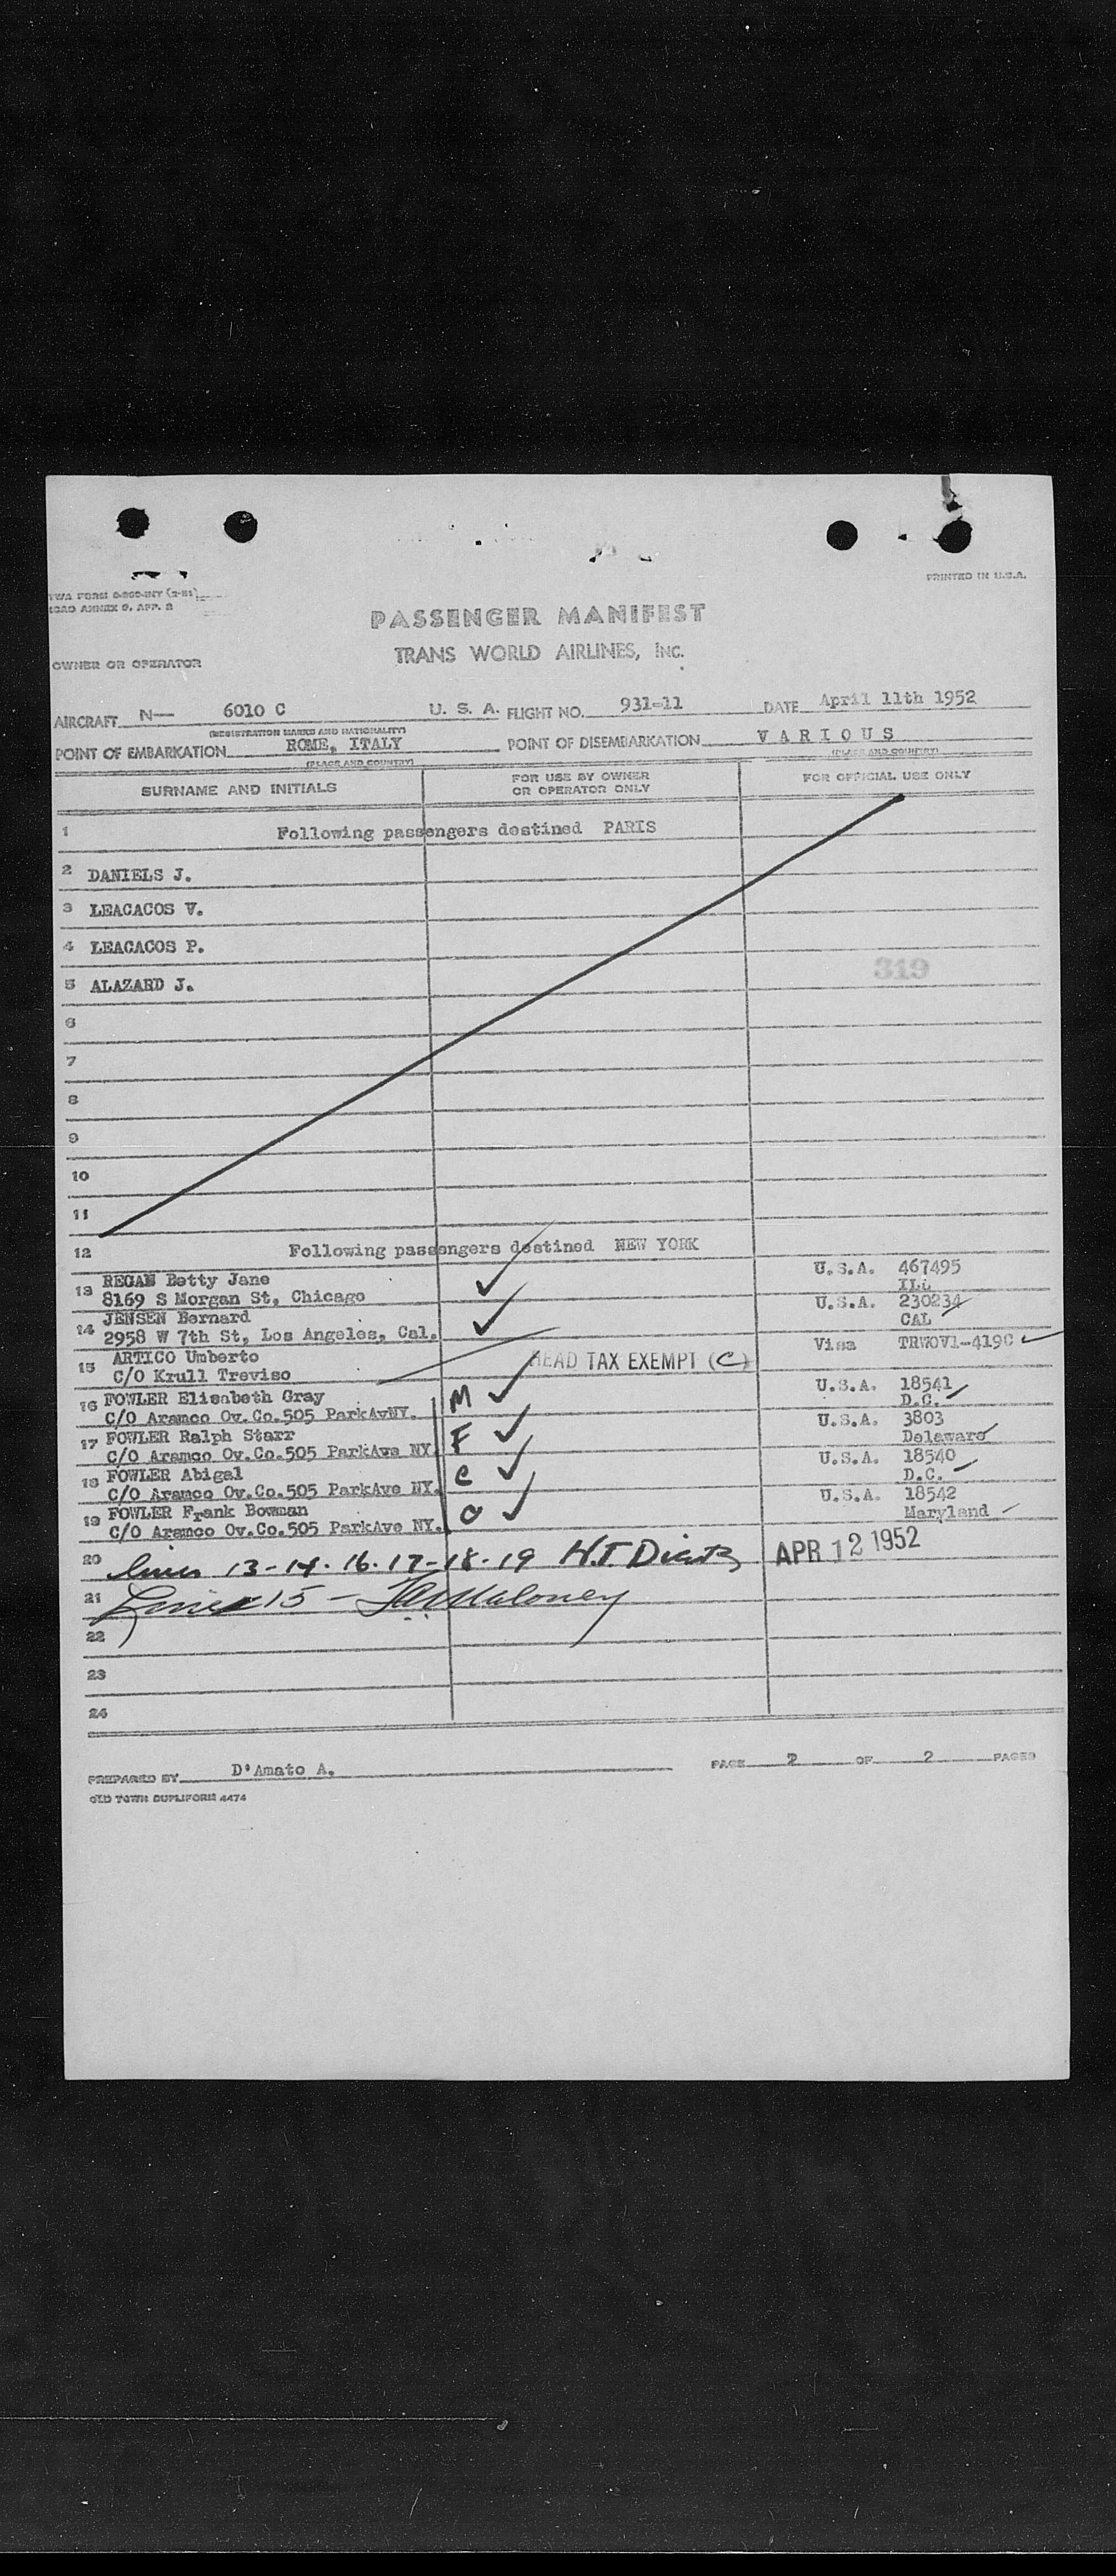 PRINTED IN U.S.A.
ICAO ANNEX 9, APP. 2
PASSENGER MANIFEST
TRANS WORLD AIRLINES, INC.
OWNER OR OPERATOR
AIRCRAFT N— 6010 C U. S. A. FLIGHT NO. 931-11 DATE April 11th 1952
(REGISTRATION MARKS AND NATIONALITY)
POINT OF EMBARKATION ROME, ITALY POINT OF DISEMBARKATION VARIOUS
(PLACE AND COUNTRY) (PLACE AND COUNTRY)
SURNAME AND INITIALS FOR USE BY OWNER OR OPERATOR ONLY FOR OFFICIAL USE ONLY
1 Following passengers destined PARIS
2 DANIELS J.
3 LEACACOS V.
4 LEACACOS P.
319
5 ALAZARD J.
6
7
8
9
10
11
12 Following passengers destined NEW YORK
13 REGAN Betty Jane U.S.A. 467495
8169 S Morgan St, Chicago ILL
14 JENSEN Bernard U.S.A. 230234
2958 W 7th St, Los Angeles, Cal. CAL
15 ARTICO Umberto Visa
C/O Krull Treviso HEAD TAX EXEMPT (C)
16 FOWLER Elisabeth Gray M U.S.A. 18541
C/O Aramco Ov.Co.505 ParkAvNY. D.C.
17 FOWLER Ralph Starr F U.S.A. 3803
C/O Aramco Ov.Co.505 ParkAve NY. Delaware
18 FOWLER Abigal C U.S.A. 18540
C/O Aramco Ov.Co.505 ParkAve NY. D.C.
19 FOWLER Frank Bowman O U.S.A. 18542
C/O Aramco Ov.Co.505 ParkAve NY. Maryland
20 lines 13-14-16-17-18-19 H.T. APR 12 1952
21 Line 15 - Maloney
22
23
24
PREPARED BY D'Amato A. PAGE 2 OF 2 PAGES
OLD TOWN DUPLIFORM 4474